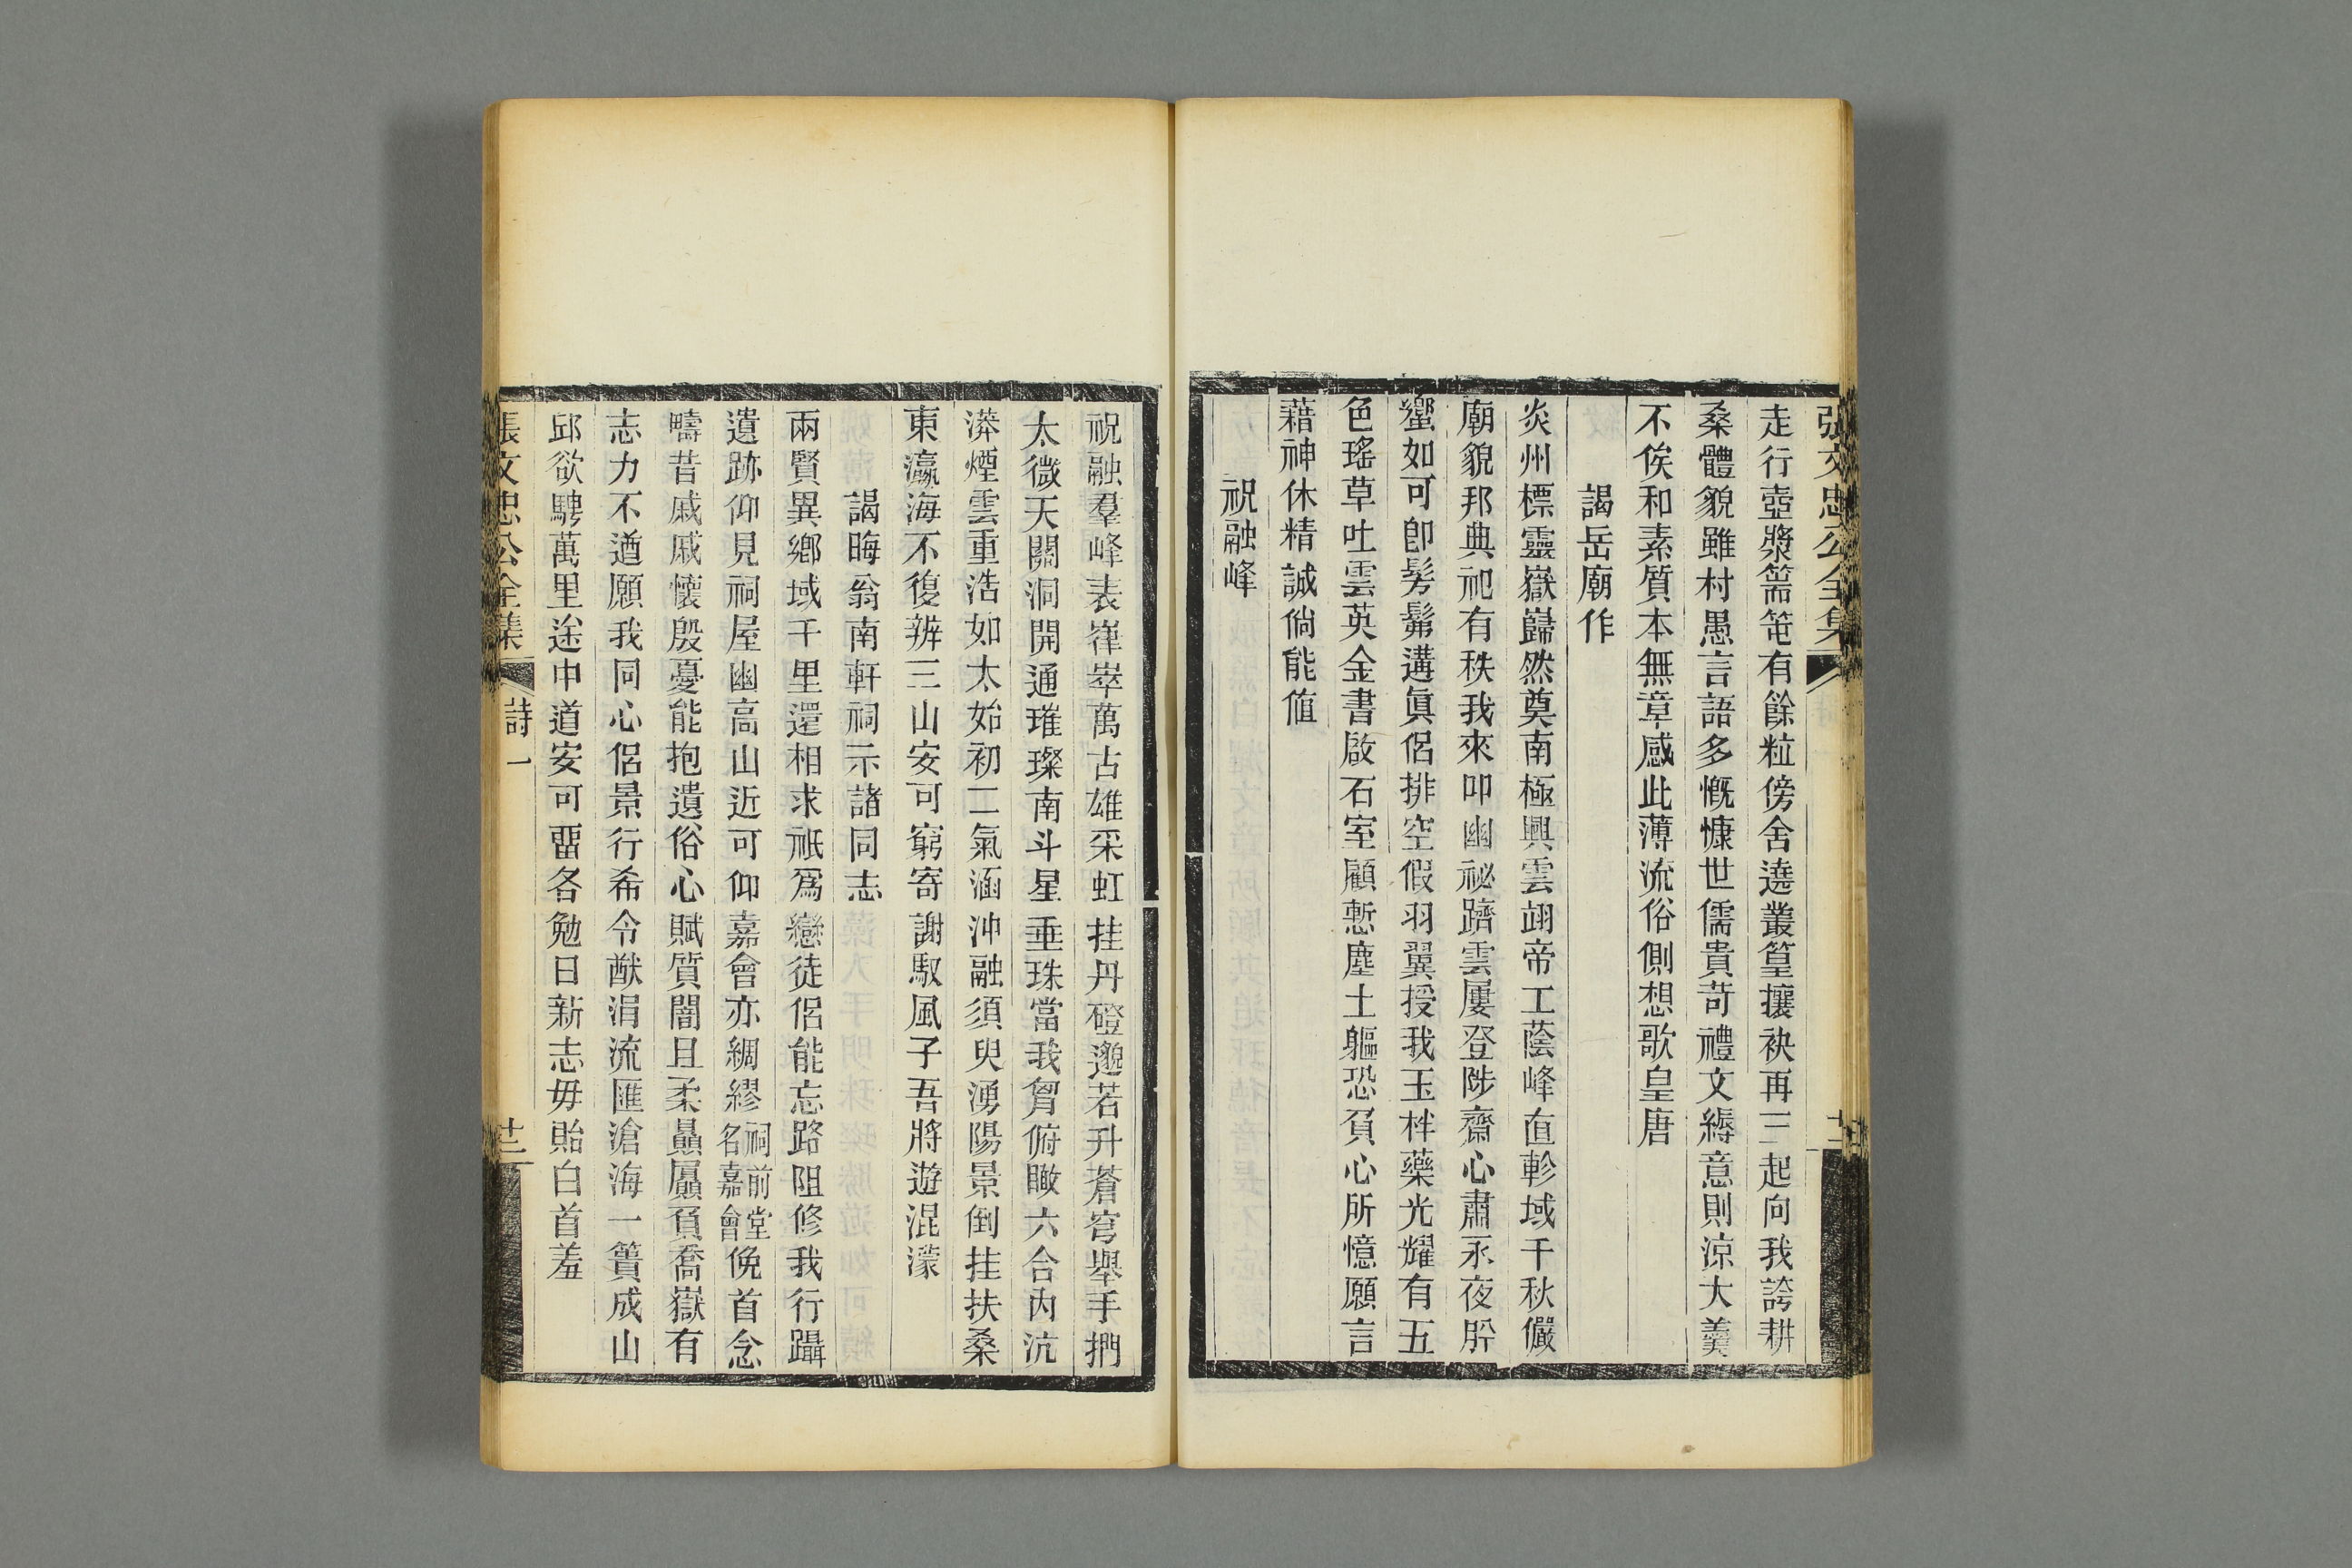 張文忠公全集
走行壺漿篛笔有餘粒傍舍遶叢篁攘袂再三起向我誇耕
桑體貌雖村愚言語多慨慷世儒貴苛禮文縟意則涼大羹
不俟和素質本無章感此薄流俗側想歌皇唐
謁岳廟作
炎州標靈嶽巋然奠南極興雲翊帝工蔭峰直軫域千秋儼
廟貌邦典祀有秩我來叩幽祕躋雲屢登陟齋心肅永夜肸
蠁如可卽髣髴遘眞侶排空假羽翼授我玉柈藥光耀有五
色瑤草吐雲英金書啟石室顧慙塵土軀恐負心所憶願言
藉神休精誠倘能值
祝融峰
祝融羣峰表嵂崒萬古雄采虹挂丹磴邈若升蒼穹舉手捫
太微天闕洞開通璀璨南斗星垂珠當我胷俯瞰六合內沆
漭煙雲重浩如太始初二氣涵沖融須臾湧陽景倒挂扶桑
東瀛海不復辨三山安可窮寄謝馭風子吾將遊混濛
謁晦翁南軒祠示諸同志
兩賢異鄉域千里還相求祇爲戀徒侶能忘路阻修我行躡
遺跡仰見祠屋幽高山近可仰嘉會亦綢繆祠前堂名嘉會俛首念
疇昔戚戚懷殷憂能抱遺俗心賦質闇且柔贔屭負喬嶽有
志力不遒願我同心侶景行希令猷涓流匯滄海一簣成山
邱欲騁萬里途中道安可畱各勉日新志毋貽白首羞
張文忠公全集
詩一